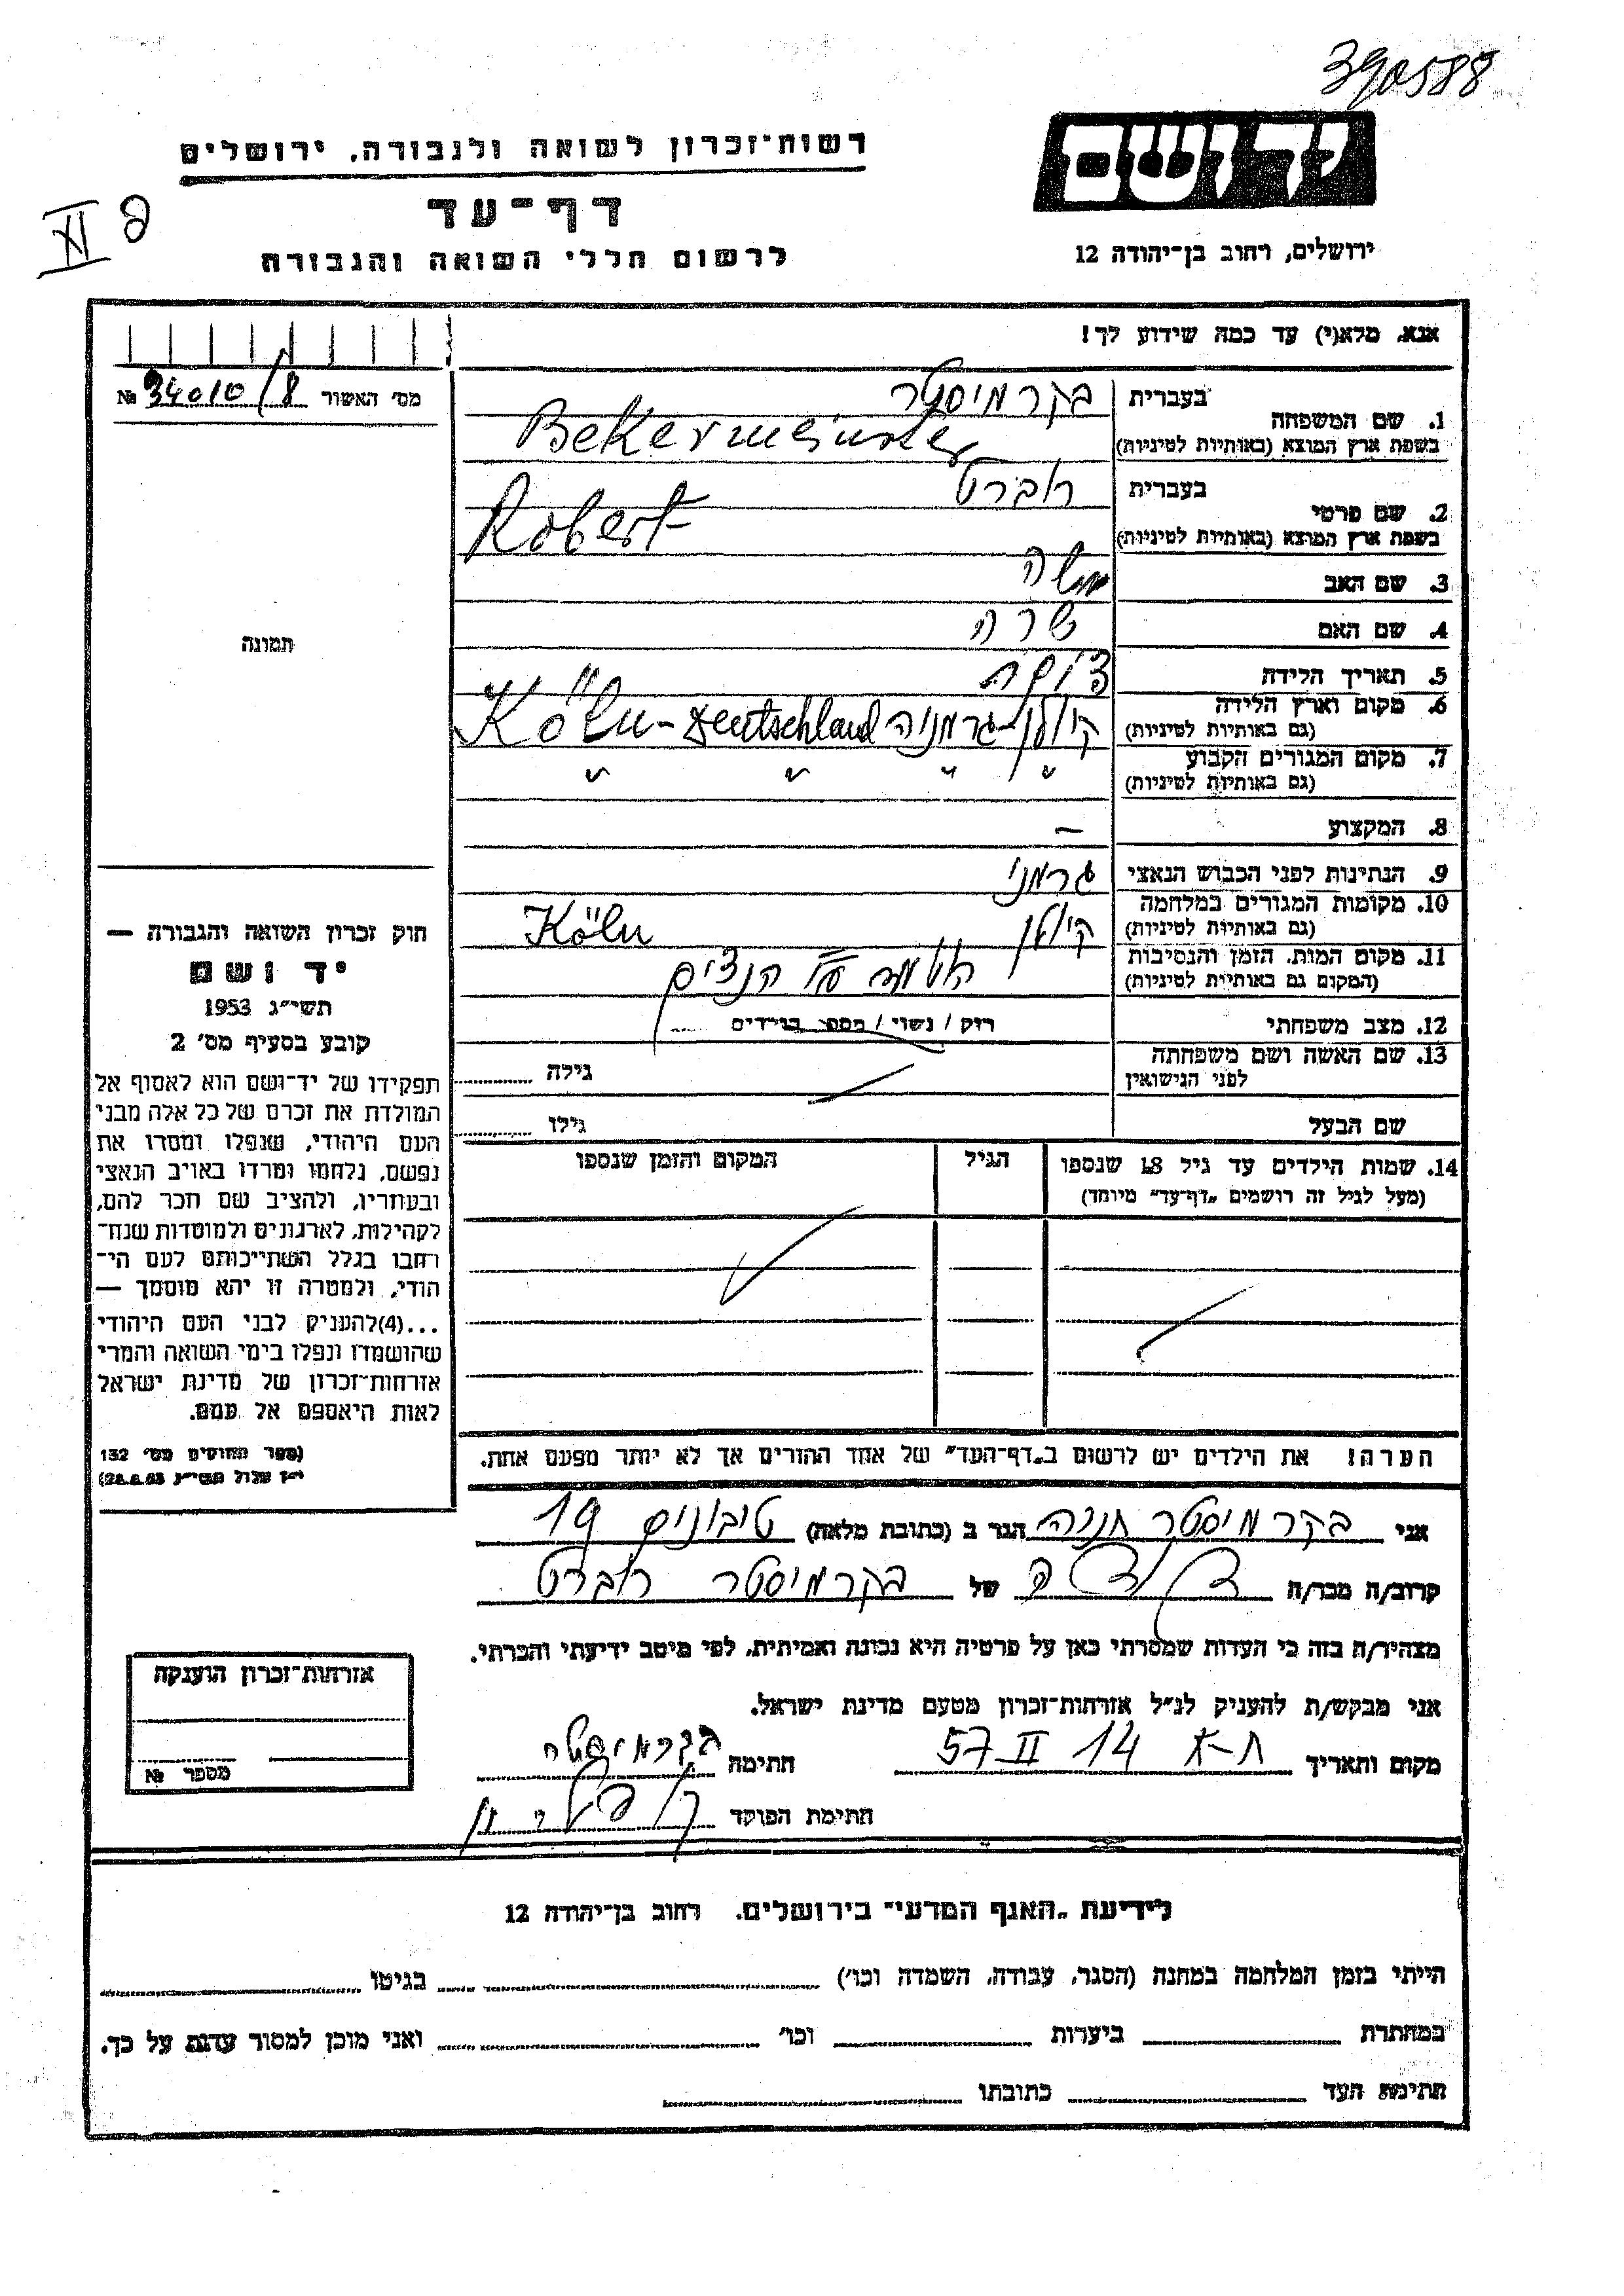 390588
יד ושם
ירושלים, רחוב בן־יהודה 12
רשות־זכרון לשואה ולגבורה, ירושלים
דף־עד
לרשום חללי השואה והגבורה
אנא, מלא(י) עד כמה שידוע לך!
מס׳ האשור № 34010/8
1. שם המשפחה
בעברית בקרמיסטר
בשפת ארץ המוצא (באותיות לטיניות)
2. שם פרטי
בעברית רוברט
בשפת ארץ המוצא (באותיות לטיניות) Robert
3. שם האב משה
4. שם האם שרה
5. תאריך הלידה
6. מקום וארץ הלידה
(גם באותיות לטיניות) קולן-גרמניה Köln-Deutschland
7. מקום המגורים הקבוע
(גם באותיות לטיניות) " " " "
8. המקצוע —
9. הנתינות לפני הכבוש הנאצי גרמני
10. מקומות המגורים במלחמה
(גם באותיות לטיניות) קולן Köln
11. מקום המות, הזמן והנסיבות
(המקום גם באותיות לטיניות) הנצים
12. מצב משפחתי רווק / נשוי / מספר הילדים
13. שם האשה ושם משפחתה
לפני הנישואין
גילה
שם הבעל
גילו
14. שמות הילדים עד גיל 18 שנספו
(מעל לגיל זה רושמים „דף־עד״ מיוחד)
הגיל
המקום והזמן שנספו
הערה! את הילדים יש לרשום ב„דף־העד״ של אחד ההורים אך לא יותר מפעם אחת.
תמונה
חוק זכרון השואה והגבורה —
יד ושם
תשי״ג 1953
קובע בסעיף מס׳ 2
תפקידו של יד־ושם הוא לאסוף אל
המולדת את זכרם של כל אלה מבני
העם היהודי, שנפלו ומסרו את
נפשם, נלחמו ומרדו באויב הנאצי
ובעוזריו, ולהציב שם וזכר להם,
לקהילות, לארגונים ולמוסדות שנח־
רבו בגלל השתייכותם לעם הי־
הודי, ולמטרה זו יהא מוסמך —
...(4)להעניק לבני העם היהודי
שהושמדו ונפלו בימי השואה והמרי
אזרחות־זכרון של מדינת ישראל
לאות היאספם אל עמם.
(ספר החוקים מס׳ 132
י״ז אלול תשי״ג 28.8.53)
אני בקרמיסטר חניה הגר ב (כתובת מלאה) טיבונים 19
קרוב/ה מכר/ה של בקרמיסטר רוברט
מצהיר/ה בזה כי העדות שמסרתי כאן על פרטיה היא נכונה ואמיתית, לפי מיטב ידיעתי והכרתי.
אני מבקש/ת להעניק לנ״ל אזרחות־זכרון מטעם מדינת ישראל.
מקום ותאריך ת-א 14 II 57 חתימה בקרמיסטר
חתימת הפוקד
אזרחות־זכרון הוענקה
מספר №
לידיעת „האגף המדעי״ בירושלים, רחוב בן־יהודה 12
הייתי בזמן המלחמה במחנה (הסגר, עבודה, השמדה וכו׳) בגיטו
במחתרת ביערות וכו׳ ואני מוכן למסור עדות על כך.
חתימת העד כתובתו